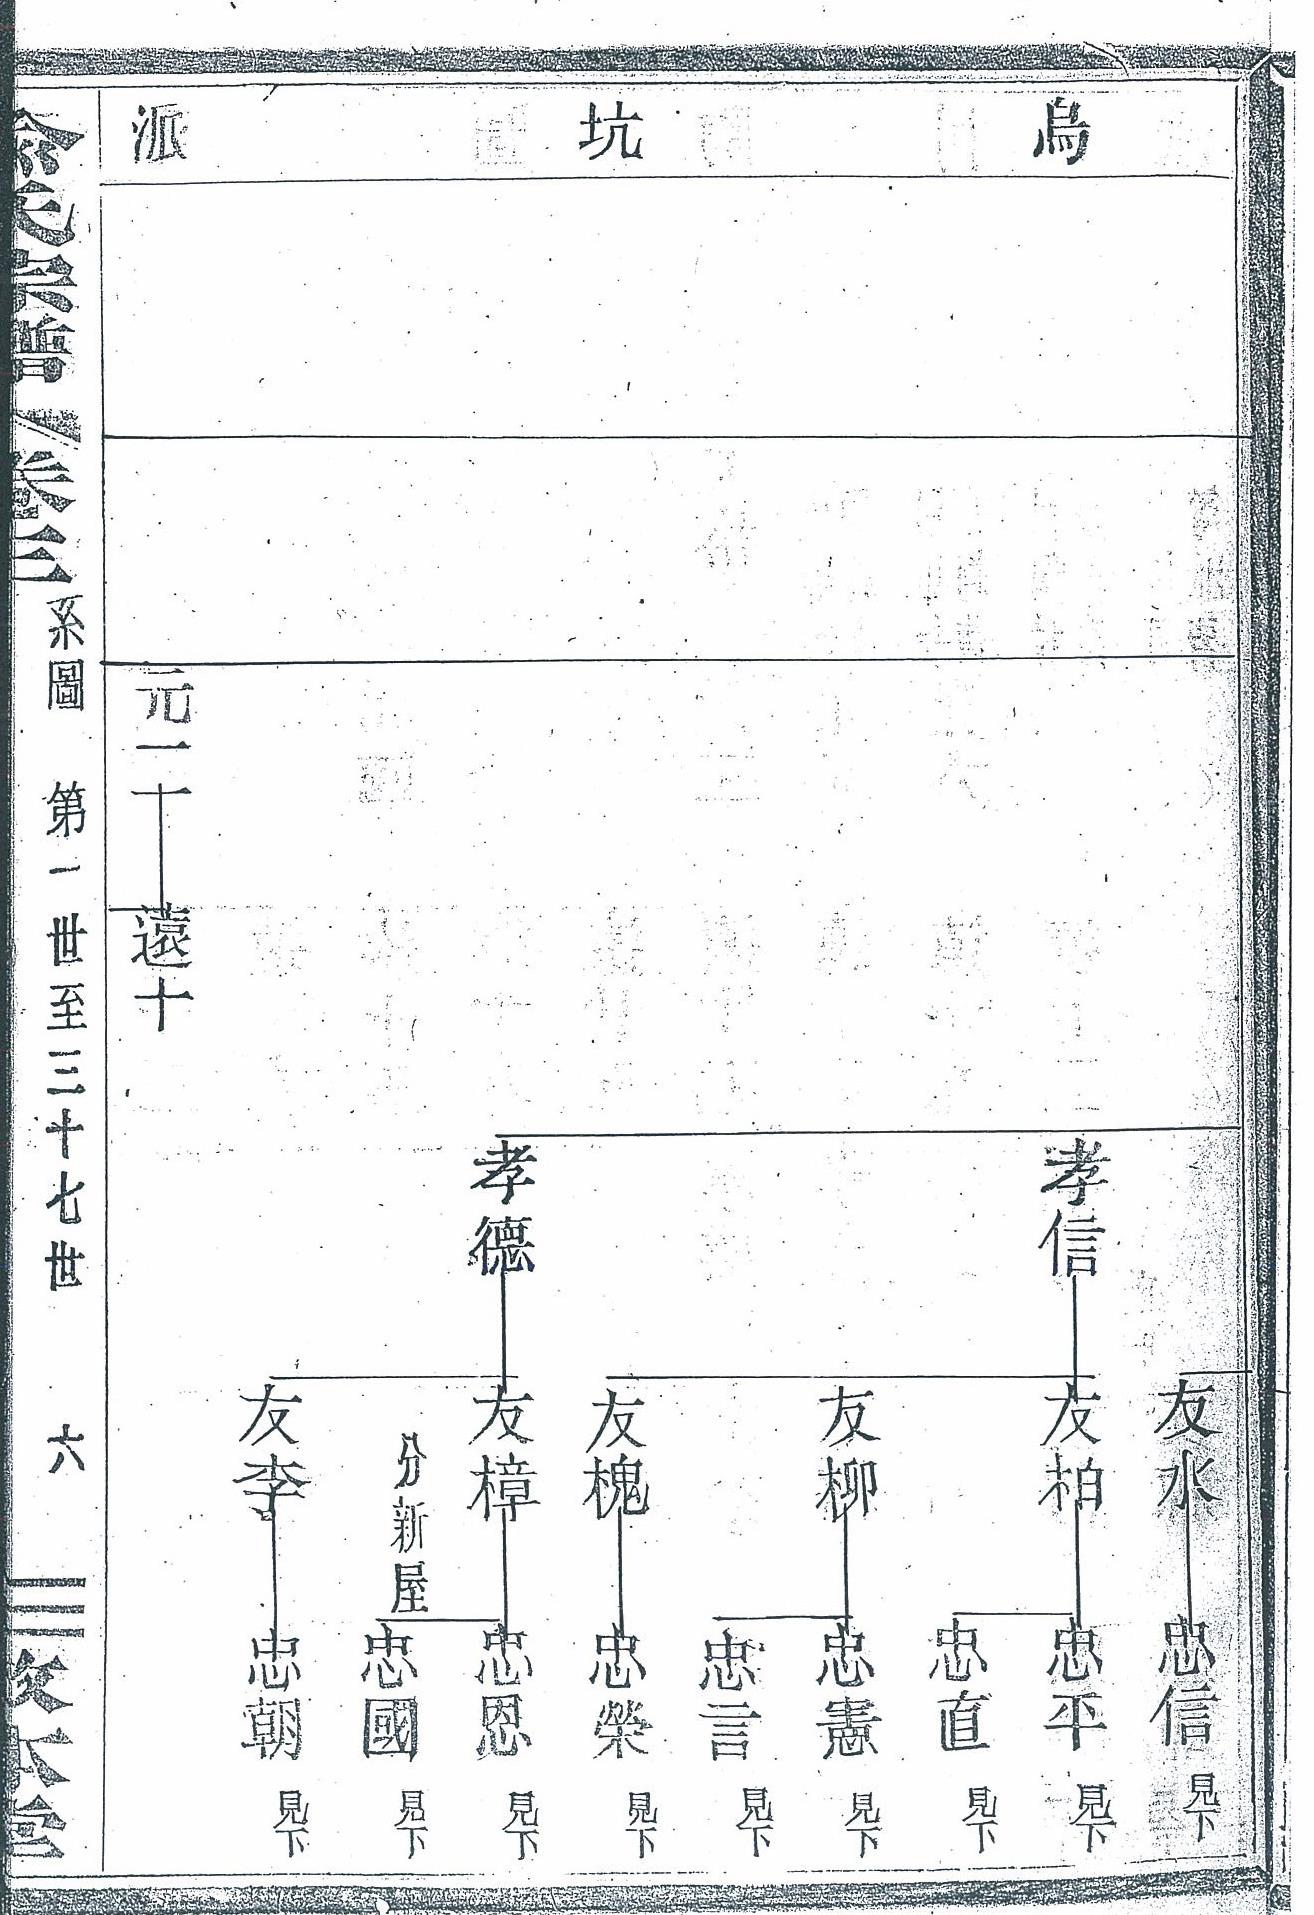 烏坑派
友水
忠信 見下
孝信
友柏
忠平 見下
忠直 見下
友柳
忠憲 見下
忠言 見下
友槐
忠榮 見下
孝德
友樟
忠恩 見下
分新屋
忠國 見下
友李
忠朝 見下
元一十
遠十
氏宗譜 卷三 系圖 第一世至三十七世 六 本堂